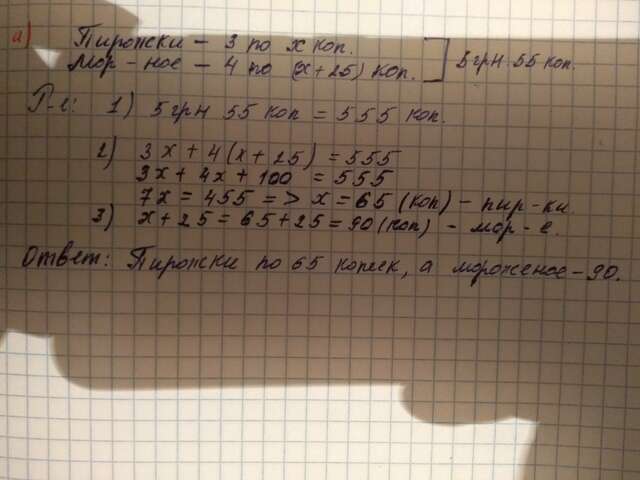 а) Пирожки - 3 по x коп.
Мор-ное - 4 по (x+25) коп. ] 5 грн 55 коп.
Р-е: 1) 5 грн 55 коп = 555 коп.
2) 3x + 4(x+25) = 555
3x + 4x + 100 = 555
7x = 455 => x = 65 (коп) - пир-ки.
3) x+25 = 65+25 = 90 (коп) - мор-е.
Ответ: Пирожки по 65 копеек, а мороженое - 90.